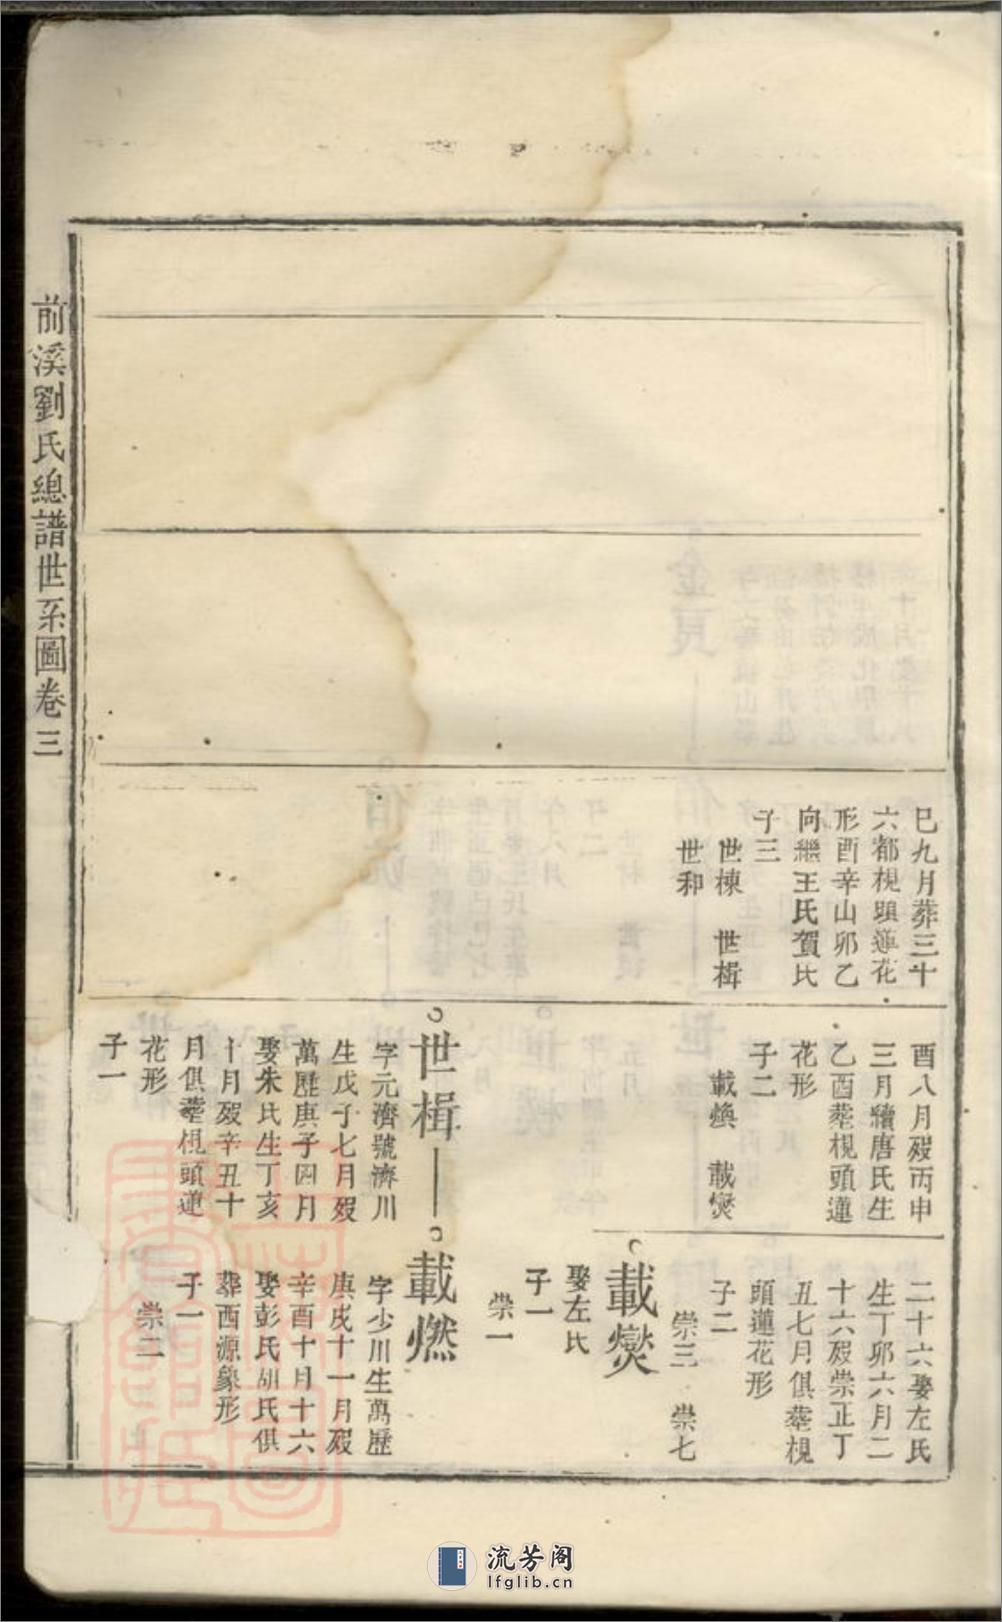 前溪劉氏總譜世系圖卷三
巳九月葬三十
六都梘頭蓮花
形酉辛山卯乙
向繼王氏賀氏
子三
世棟　世楫
世和
酉八月歿丙申
三月續唐氏生
乙酉葬梘頭蓮
花形
子二
載煥　載爕
二十六娶左氏
生丁卯六月二
十六歿崇正丁
丑七月俱葬梘
頭蓮花形
子二
崇三　崇七
載爕
娶左氏
子一
崇一
世楫
字元濟號濟川
生戊子七月歿
萬歷庚子四月
娶朱氏生丁亥
十月歿辛丑十
月俱葬梘頭蓮
花形
子一
載燃
字少川生萬歷
庚戌十一月歿
辛酉十月十六
娶彭氏胡氏俱
葬西源象形
子一
崇二
流芳阁
lfglib.cn